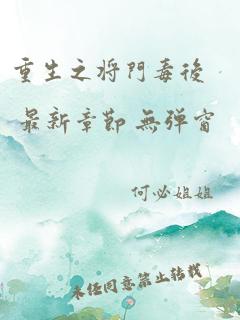 重生之将門毒後
最新章節 無弹窗
何必姐姐
未经同意禁止转载